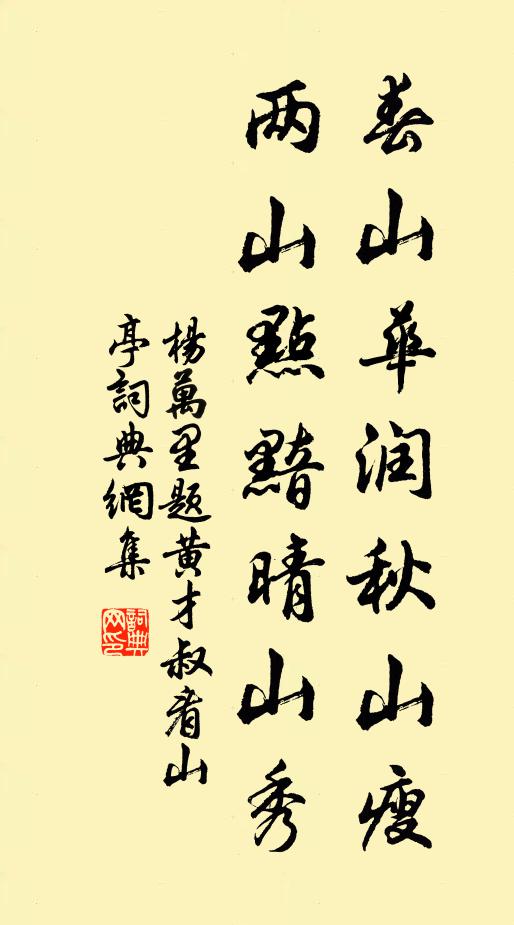 春山華润秋山瘦
两山點黯晴山秀
楊萬里题黄才叔看山
亭詞典網集
詞典
网印